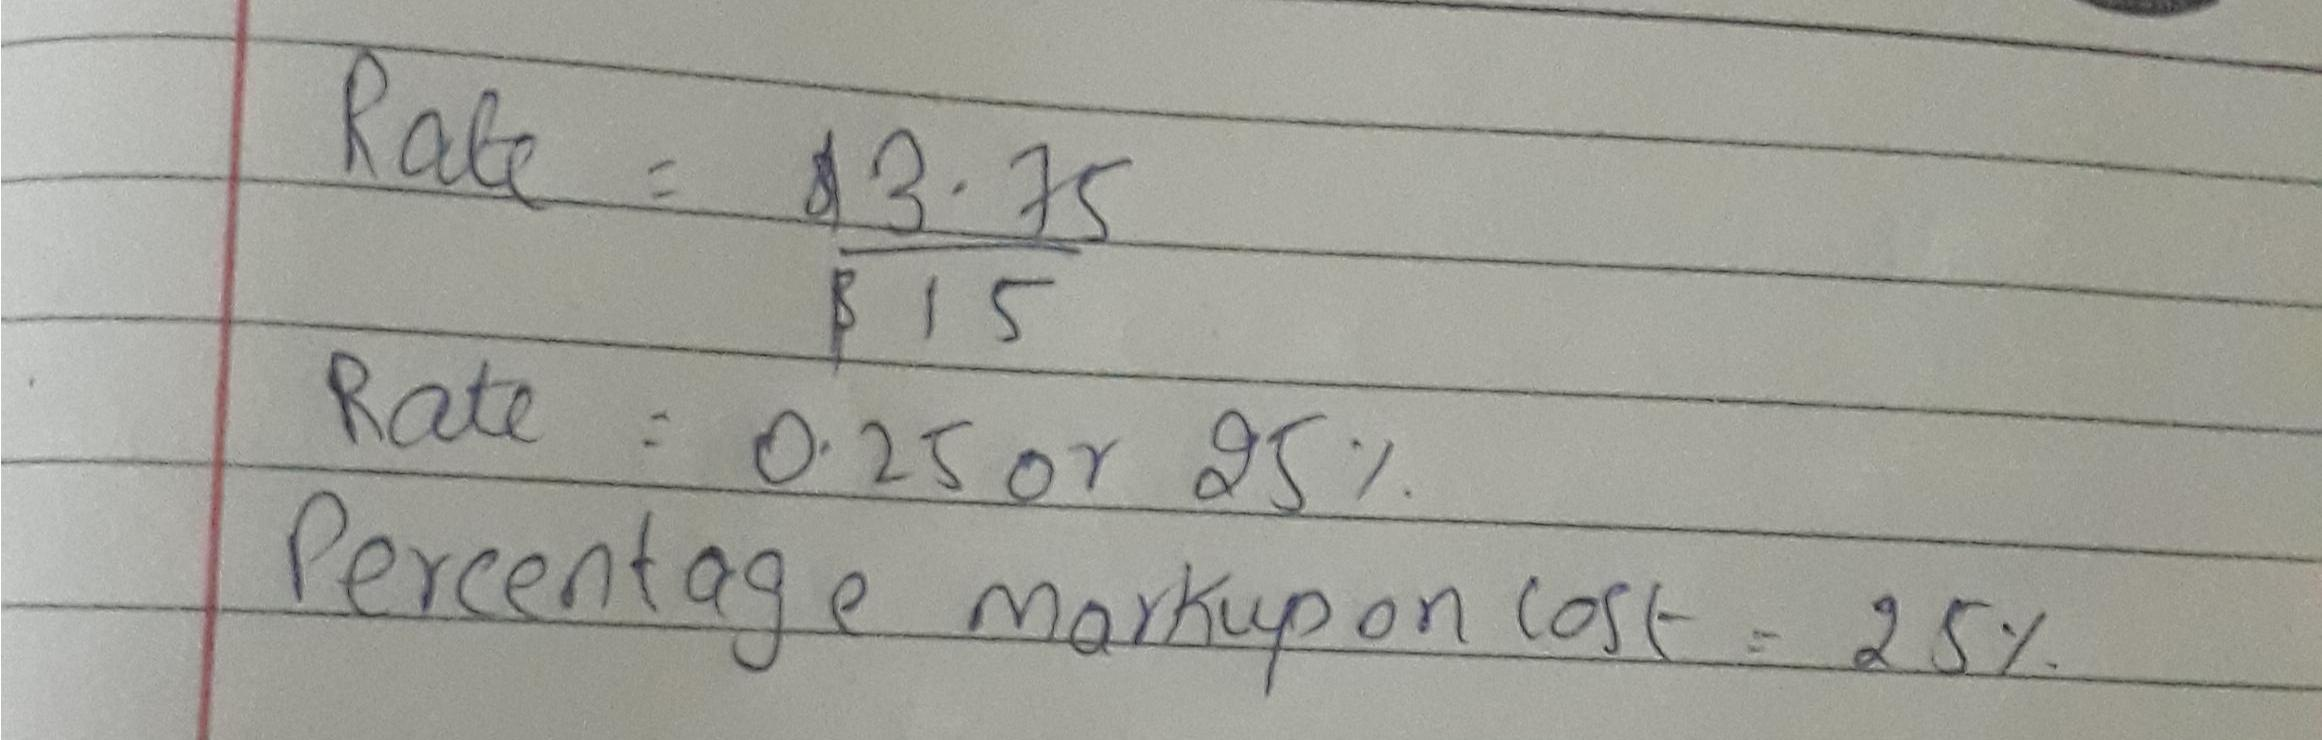 Rate = $3.75
$15
Rate = 0.25 or 25%
Percentage markup on cost = 25%